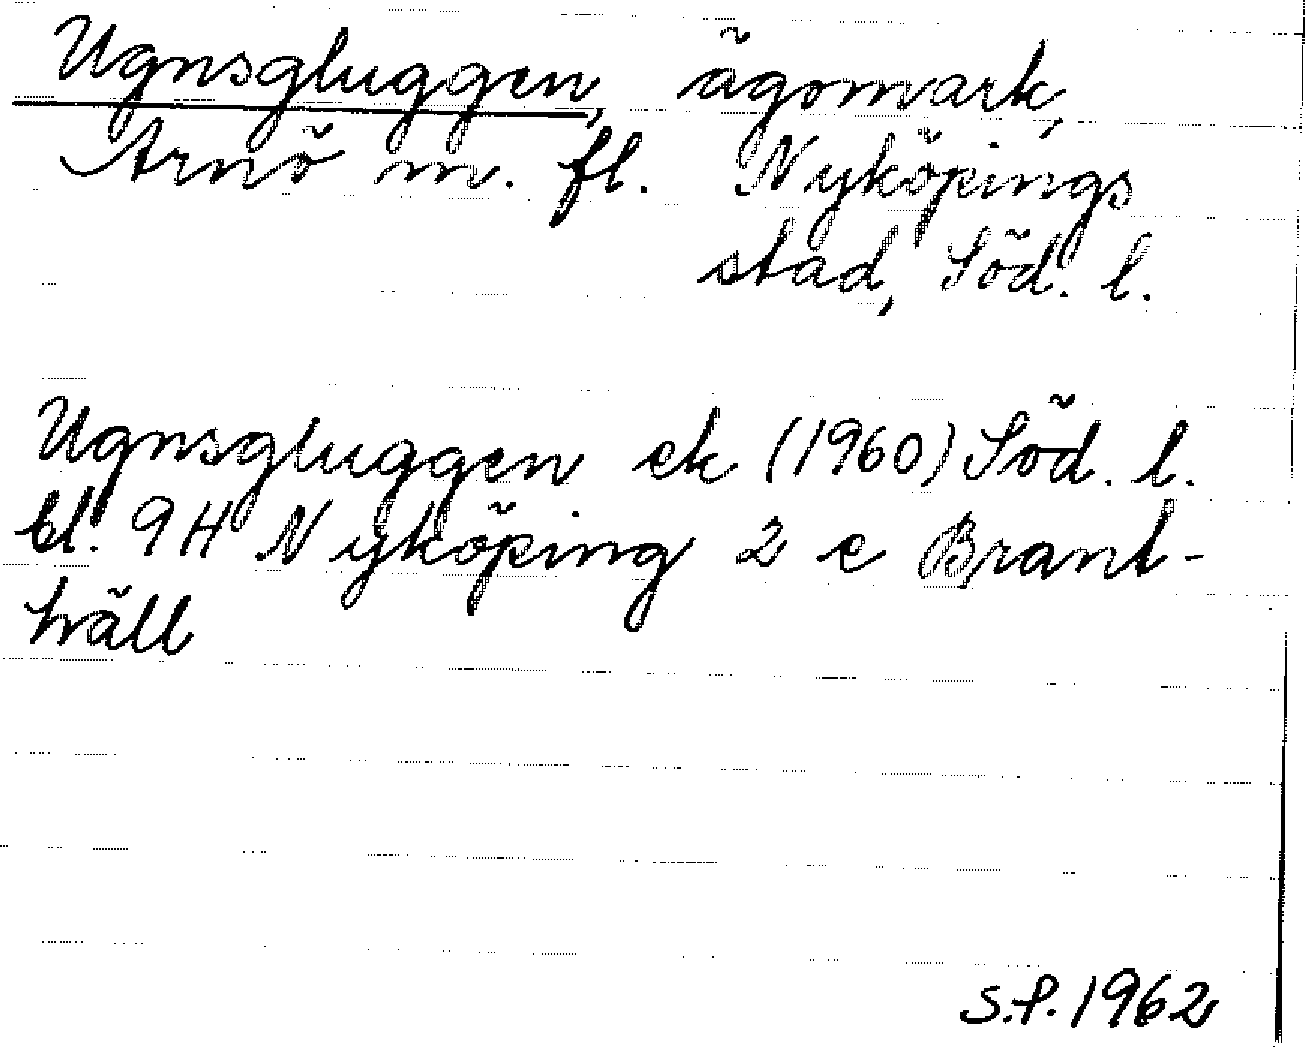 Ugnsgluggen, ägomark,
Arnö m. fl. Nyköpings
stad, Söd. l.
Ugnsgluggen ek (1960) Söd. l.
bl. 9H Nyköping 2 e Brant-
häll
S.P. 1962